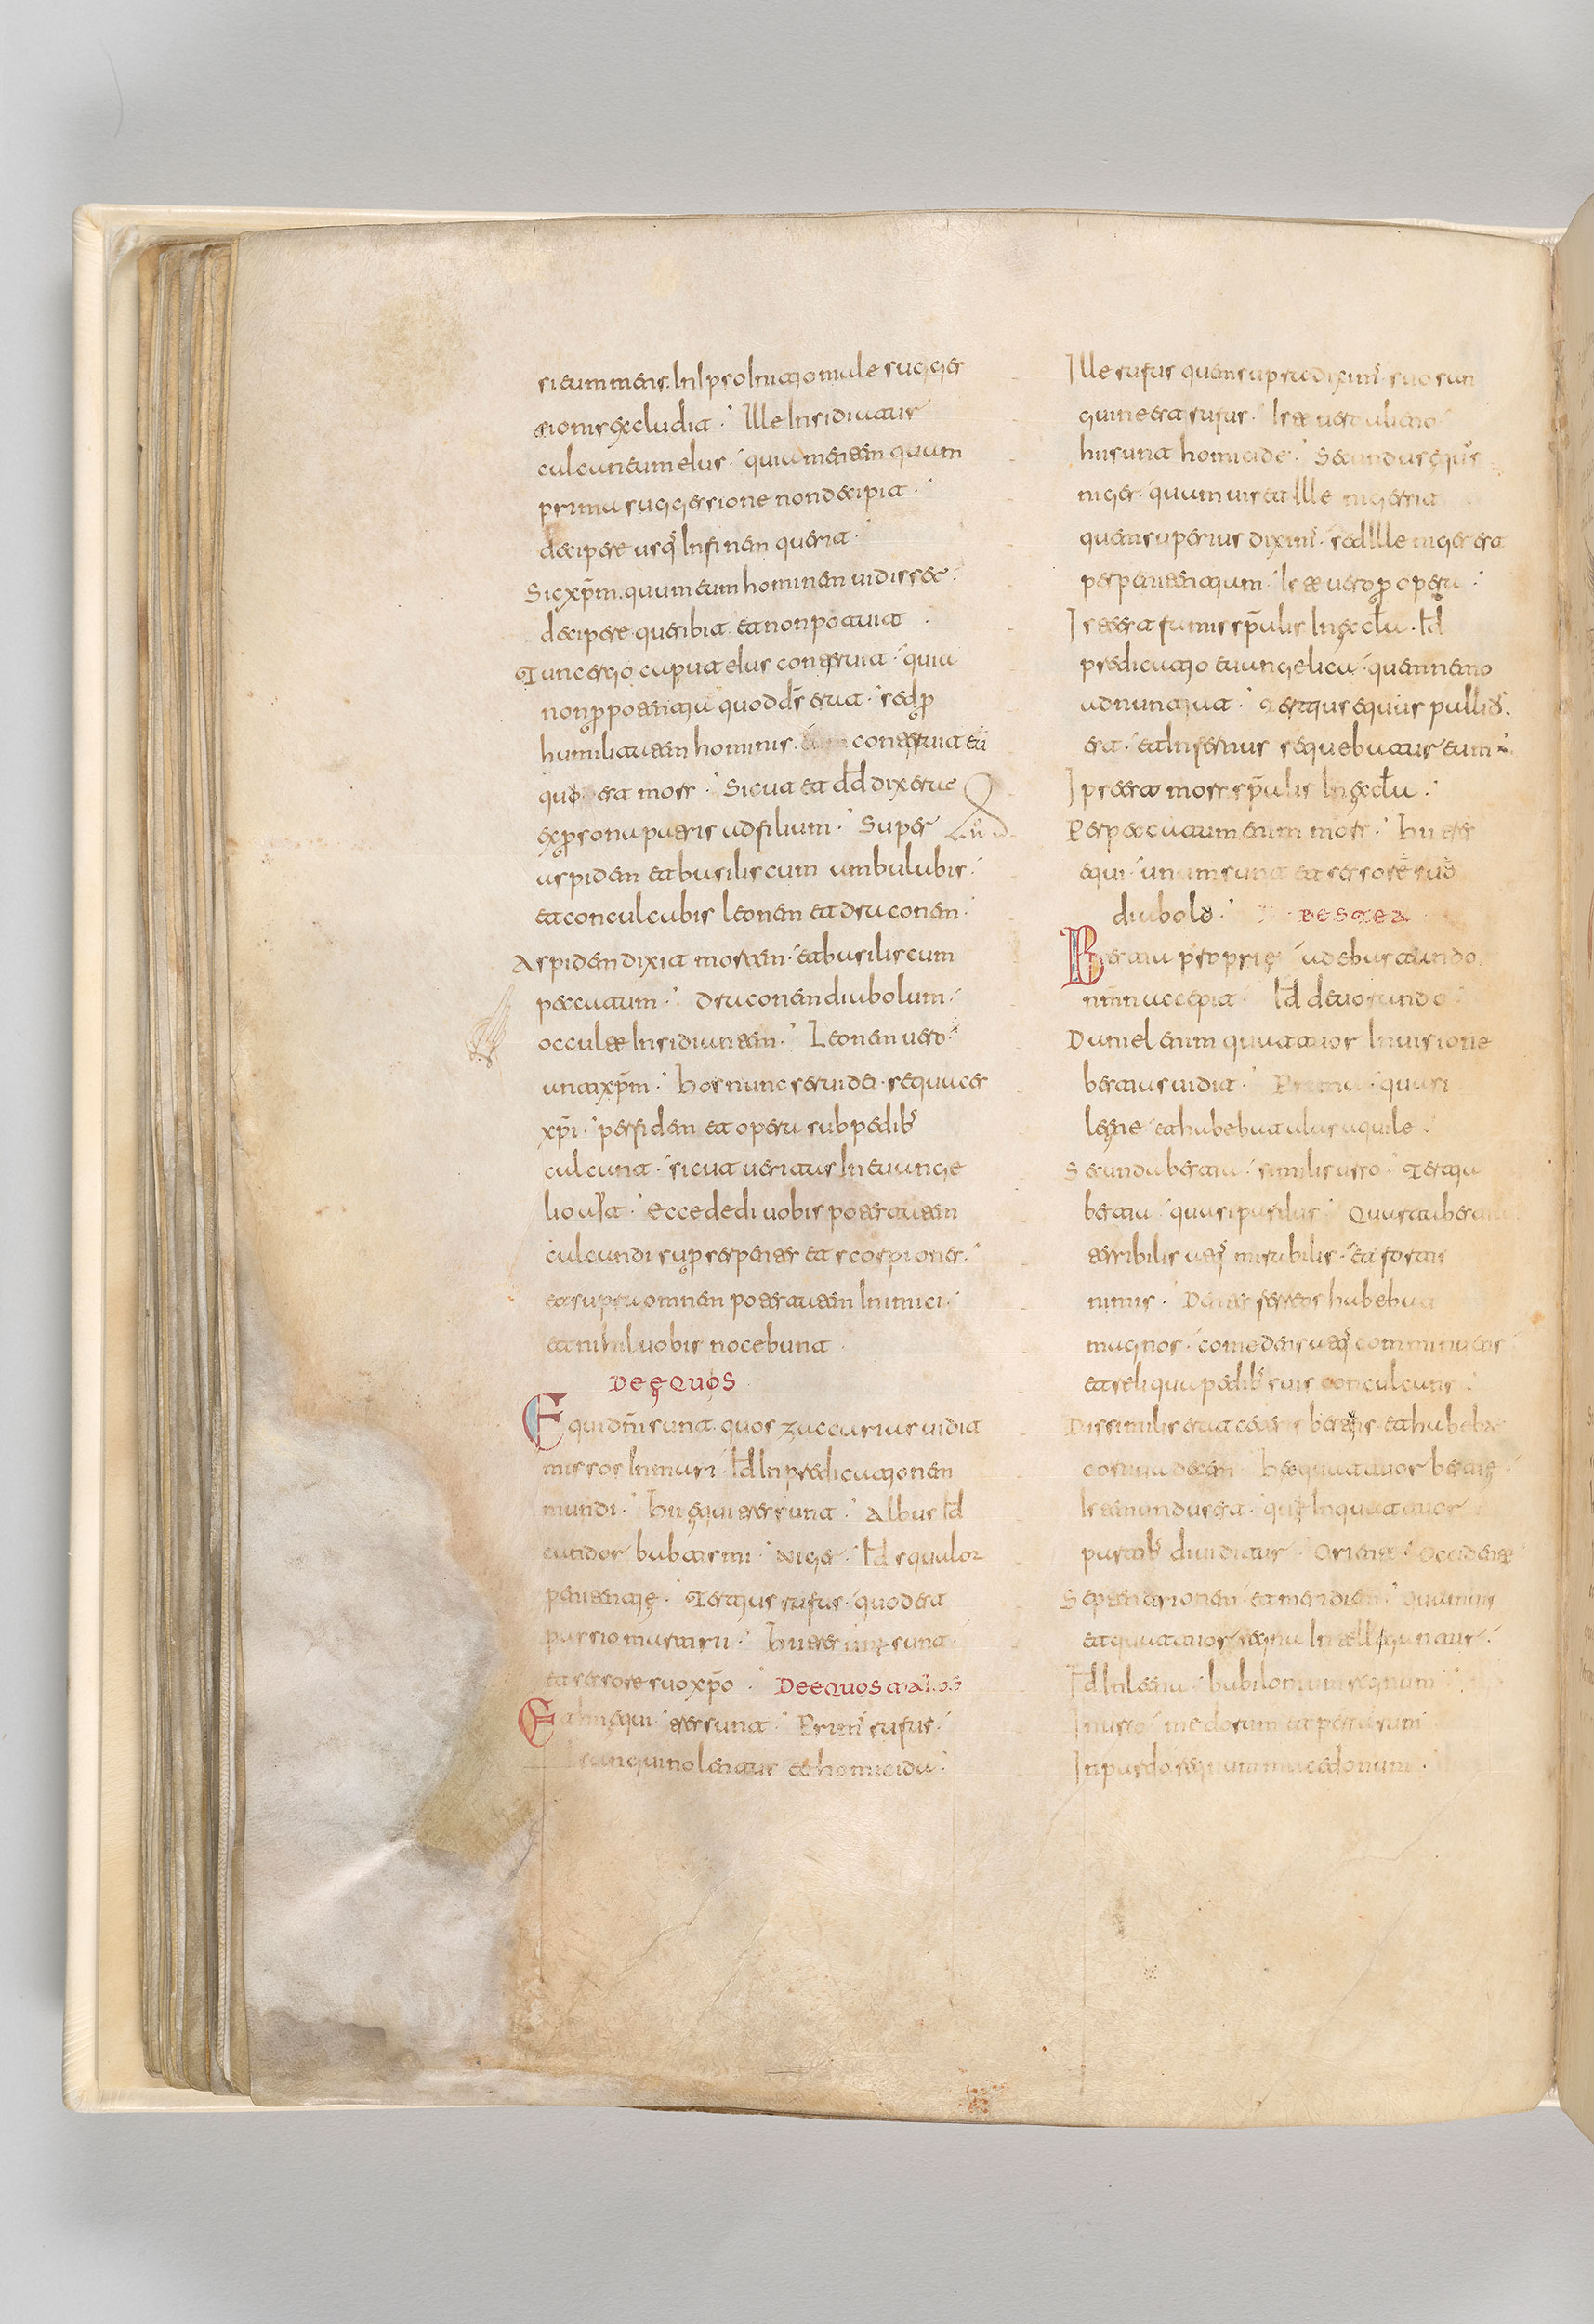 si eum mens. In ipso initio male sugges
tionis excludit. Ille insidiatur
calcaneum eius. quia mentem quam
prima suggessione non decipit.
decipere usq; in finem querit.
Sic xp̄m. quum eum hominem uidisset.
decipere queribit et non potuit.
Tunc ergo caput eius conteruit. quia
non ꝑ potentia quod ds̄ erat. sed ꝑ
humilitatem hominis. conteruit eū
quo erat mors. Sicut et dd̄ dixerat
exꝑsona patris ad filium. Super
aspidem et basiliscum ambulabis.
et conculcabis leonem et draconem.
Aspidem dixit mortem. et basiliscum
peccatum. draconem diabolum.
occulte insidiantem. Leonem uero
antixp̄m. hos nunc serui dei. sequaces
xp̄i. per fidem et opera sub pedibꝰ
calcant. sicut ueritas in euange
lio ait. Ecce dedi uobis potestatem
calcandi suꝑ serpentes et scorpiones.
et supra omnem potestatem inimici.
et nihil uobis nocebunt
DE EQUOS
Equi dn̄i sunt. quos zaccarias uidit
missos in mari. id in predicationem
mundi. hii equi tres sunt. Albus id
candor babtismi. Niger. id squalor
penitentie. Tertius rufus. quod est
passio martirii. hii tres sunt.
et sessore suo xp̄o. DE EQUOS MALOS
equi. tres sunt. Primꝰ rufus.
sanguinolentus et homicida.
Ille rufus quem supra diximꝰ suo san
guine erat rufus. Iste uero alieno
hii sunt homicide. Secundus equꝰs
niger. quum uis et ille niger sit
quem superius diximꝰ. sed ille niger erat
per penitentium. Iste uero ꝑ opera.
Ista erat famis spīalis in eccƚa. id
predicatio euangelica. quem nemo
adnuntiat. Tertius equus pallidꝰ.
erat. et infernus sequebatur eum
Ipse erat mors spīalis in eccƚa.
Per peccatum enim mors. hii tres
equi. unum sunt et sessore suo
diabolo. DE BESTIA
Bestia proprie ad ebastando
nomen accepit. id deuorando.
Daniel enim quattuor in uisione
bestias uidit. Prima quasi
leene et habebat alas aquile.
Secunda bestia. similis urso. Tertia
bestia quasi pardus. Quarta bestia
terribilis atq; mirabilis. et fortis
nimis. Dentes ferreos habebat
magnos. comedens atq; comminuens
et reliqua pedibꝰ suis conculcans.
Dissimilis erat ceteris bestiis. et habebat
cornua decem. hec quattuor bestie
iste mundus est. qui in quattuor
partibꝰ diuiditur. Oriente. Occidente
Septentrionem et meridiem.
et quattuor regna intelleguntur.
id in leena. babilonium regnum
In urso medorum et persarum
In pardo regnum macedonum.